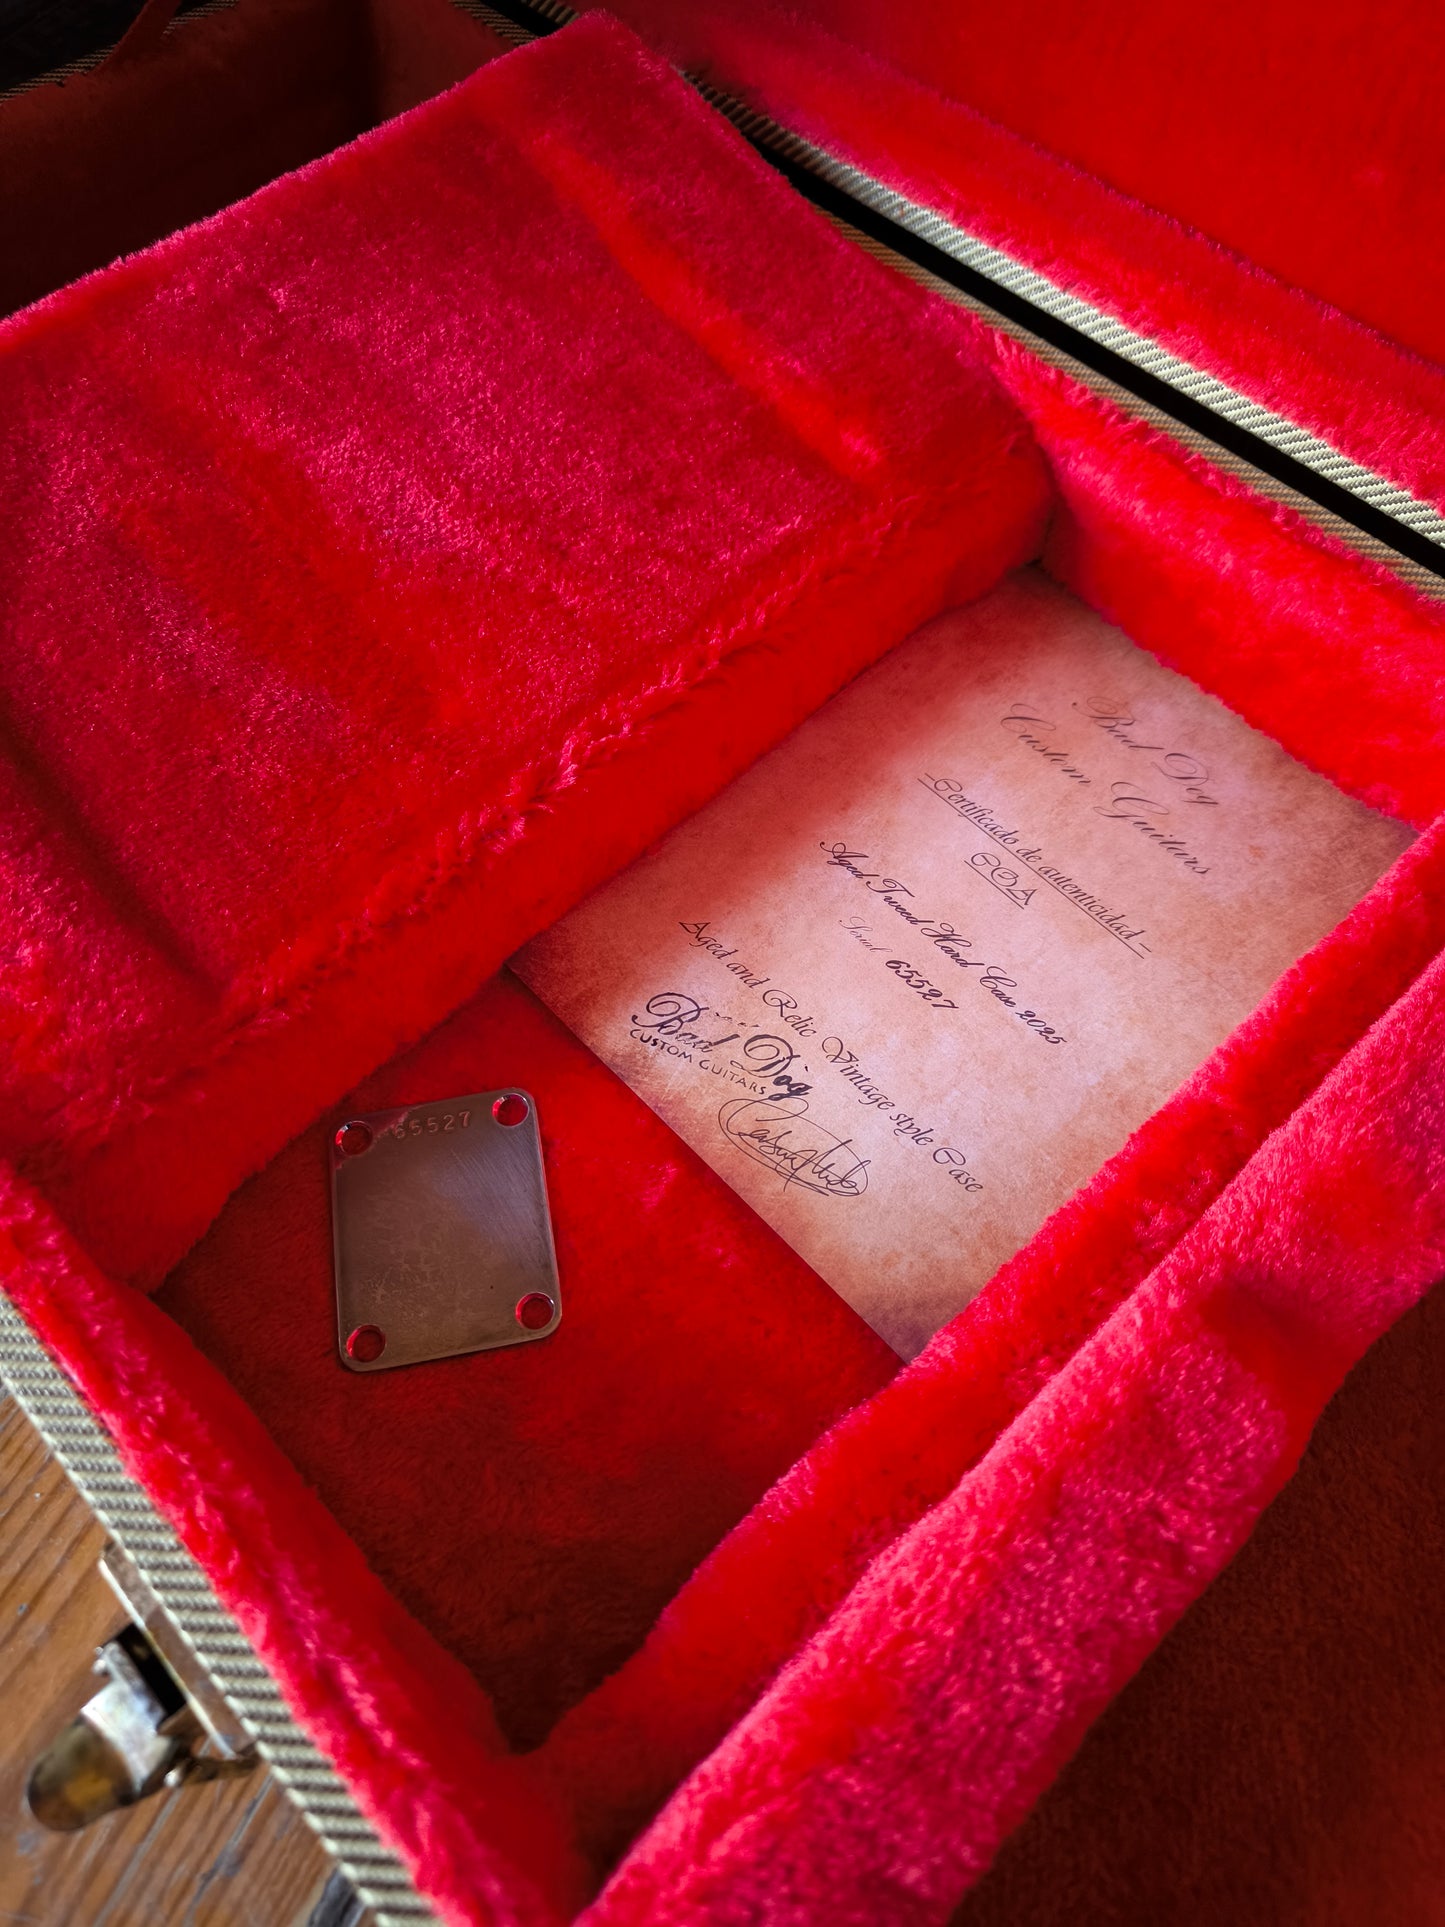 Bad Dog
Custom Guitars
Certificado de autenticidad -
COA
Aged Tweed Hard Case 2025
Serial 65527
Aged and Relic Vintage style Case
Bad Dog
CUSTOM GUITARS
65527